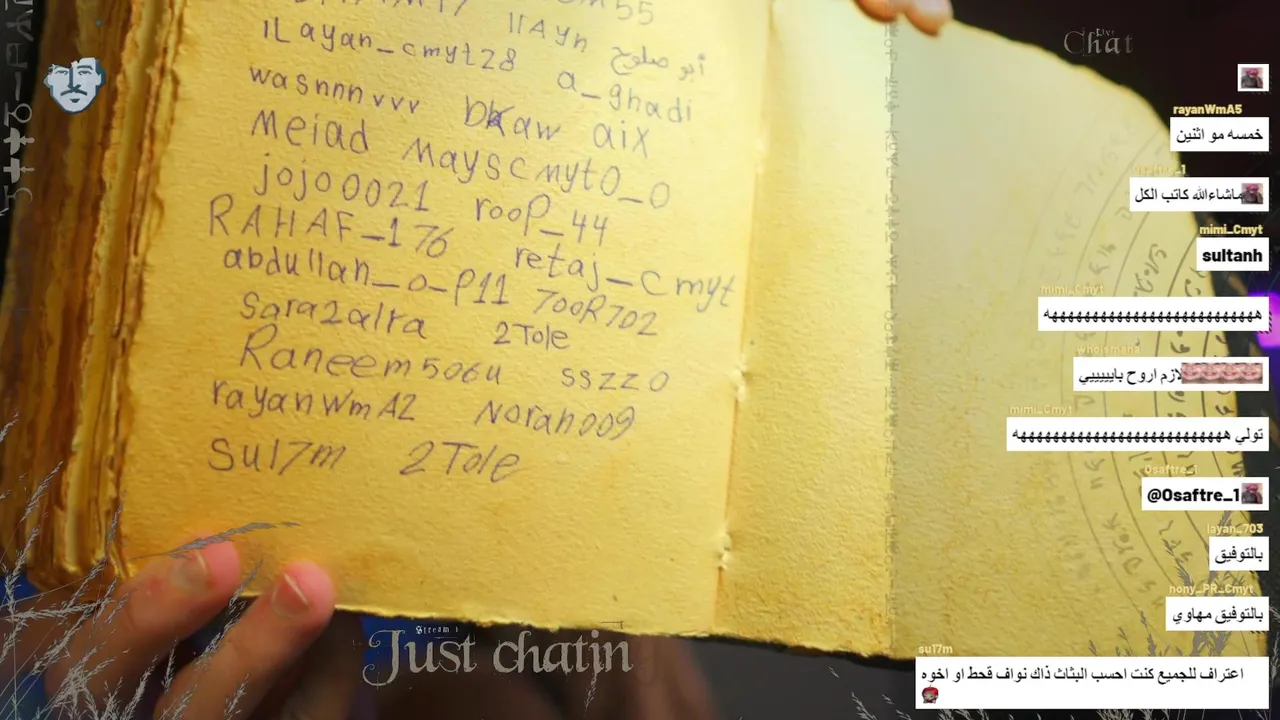 11Ayn
1Layan_cmyt28 أبو صلوح
wasnnnvvv a_ghadi
Meiad DKaw aix
jojo0021 MayscmytO_O
RAHAF_176 rooP_44
abdullan_o_P11 retaj_cmyt
Sara2alra 700R702
Raneem506u 2Tole
rayanWmA2 sszz0
Su17m Noran009
2Tole
Stream
Just chatin
Live
Chat
rayanWmA5
خمسه مو اثنين
ماشاءالله كاتب الكل
mimi_Cmyt
sultanh
mimi_Cmyt
ههههههههههههههههههههههههه
لازم اروح بايييييي
mimi_Cmyt
تولي ههههههههههههههههههههههههه
Osaftre_1
@Osaftre_1
layan_703
بالتوفيق
nony_PR_Cmyt
بالتوفيق مهاوي
su17m
اعتراف للجميع كنت احسب البثاث ذاك نواف قحط او اخوه